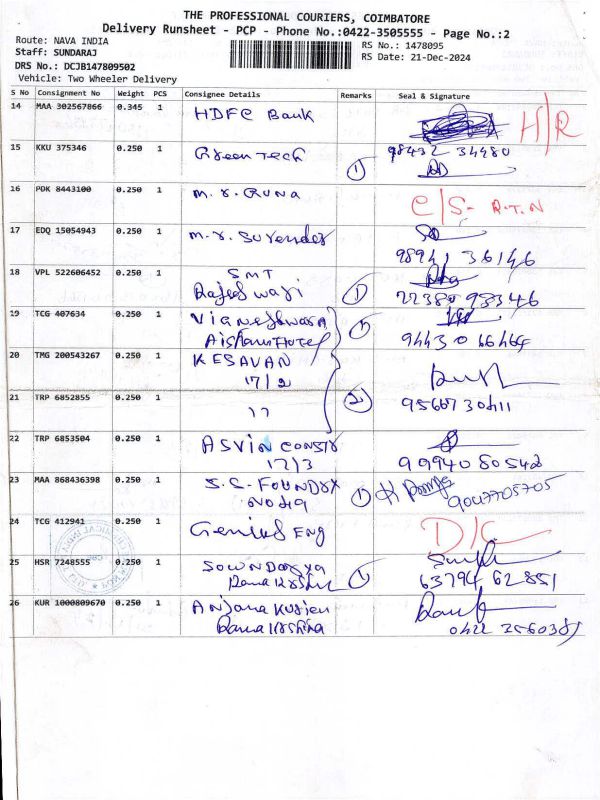 THE PROFESSIONAL COURIERS, COIMBATORE
Delivery Runsheet - PCP - Phone No.:0422-3505555 - Page No.:2
Route: NAVA INDIA
RS No.: 1478095
Staff: SUNDARAJ
RS Date: 21-Dec-2024
DRS No.: DCJB147809502
Vehicle: Two Wheeler Delivery
S No Consignment No Weight PCS Consignee Details Remarks Seal & Signature
14 MAA 302567866 0.345 1 HDFC Bank H/R
15 KKU 375346 0.250 1 Green Tech 98432 34480
1
16 PDK 8443100 0.250 1 M.r. GUNA C/S- R.T.N
17 EDQ 15054943 0.250 1 M.r. Surender
98941 36146
18 VPL 522606452 0.250 1 SMT
Rajeswari 1 98346
19 TCG 407634 0.250 1 1
94430 66464
20 TMG 200543267 0.250 1 KESAVAN
17/2
21 TRP 6852855 0.250 1 17 2
22 TRP 6853504 0.250 1 ASVIN CONSTR
17/3 99940 80542
23 MAA 868436398 0.250 1 S.C. FOUNDRY 1
India 9047705705
24 TCG 412941 0.250 1 Genius ENG D/C
25 HSR 7248555 0.250 1 SOWNDARYA
Rama Krishna 1 63794 62851
26 KUR 1000809670 0.250 1 Anjana Kurien
Rama Krishna 0422 2560381